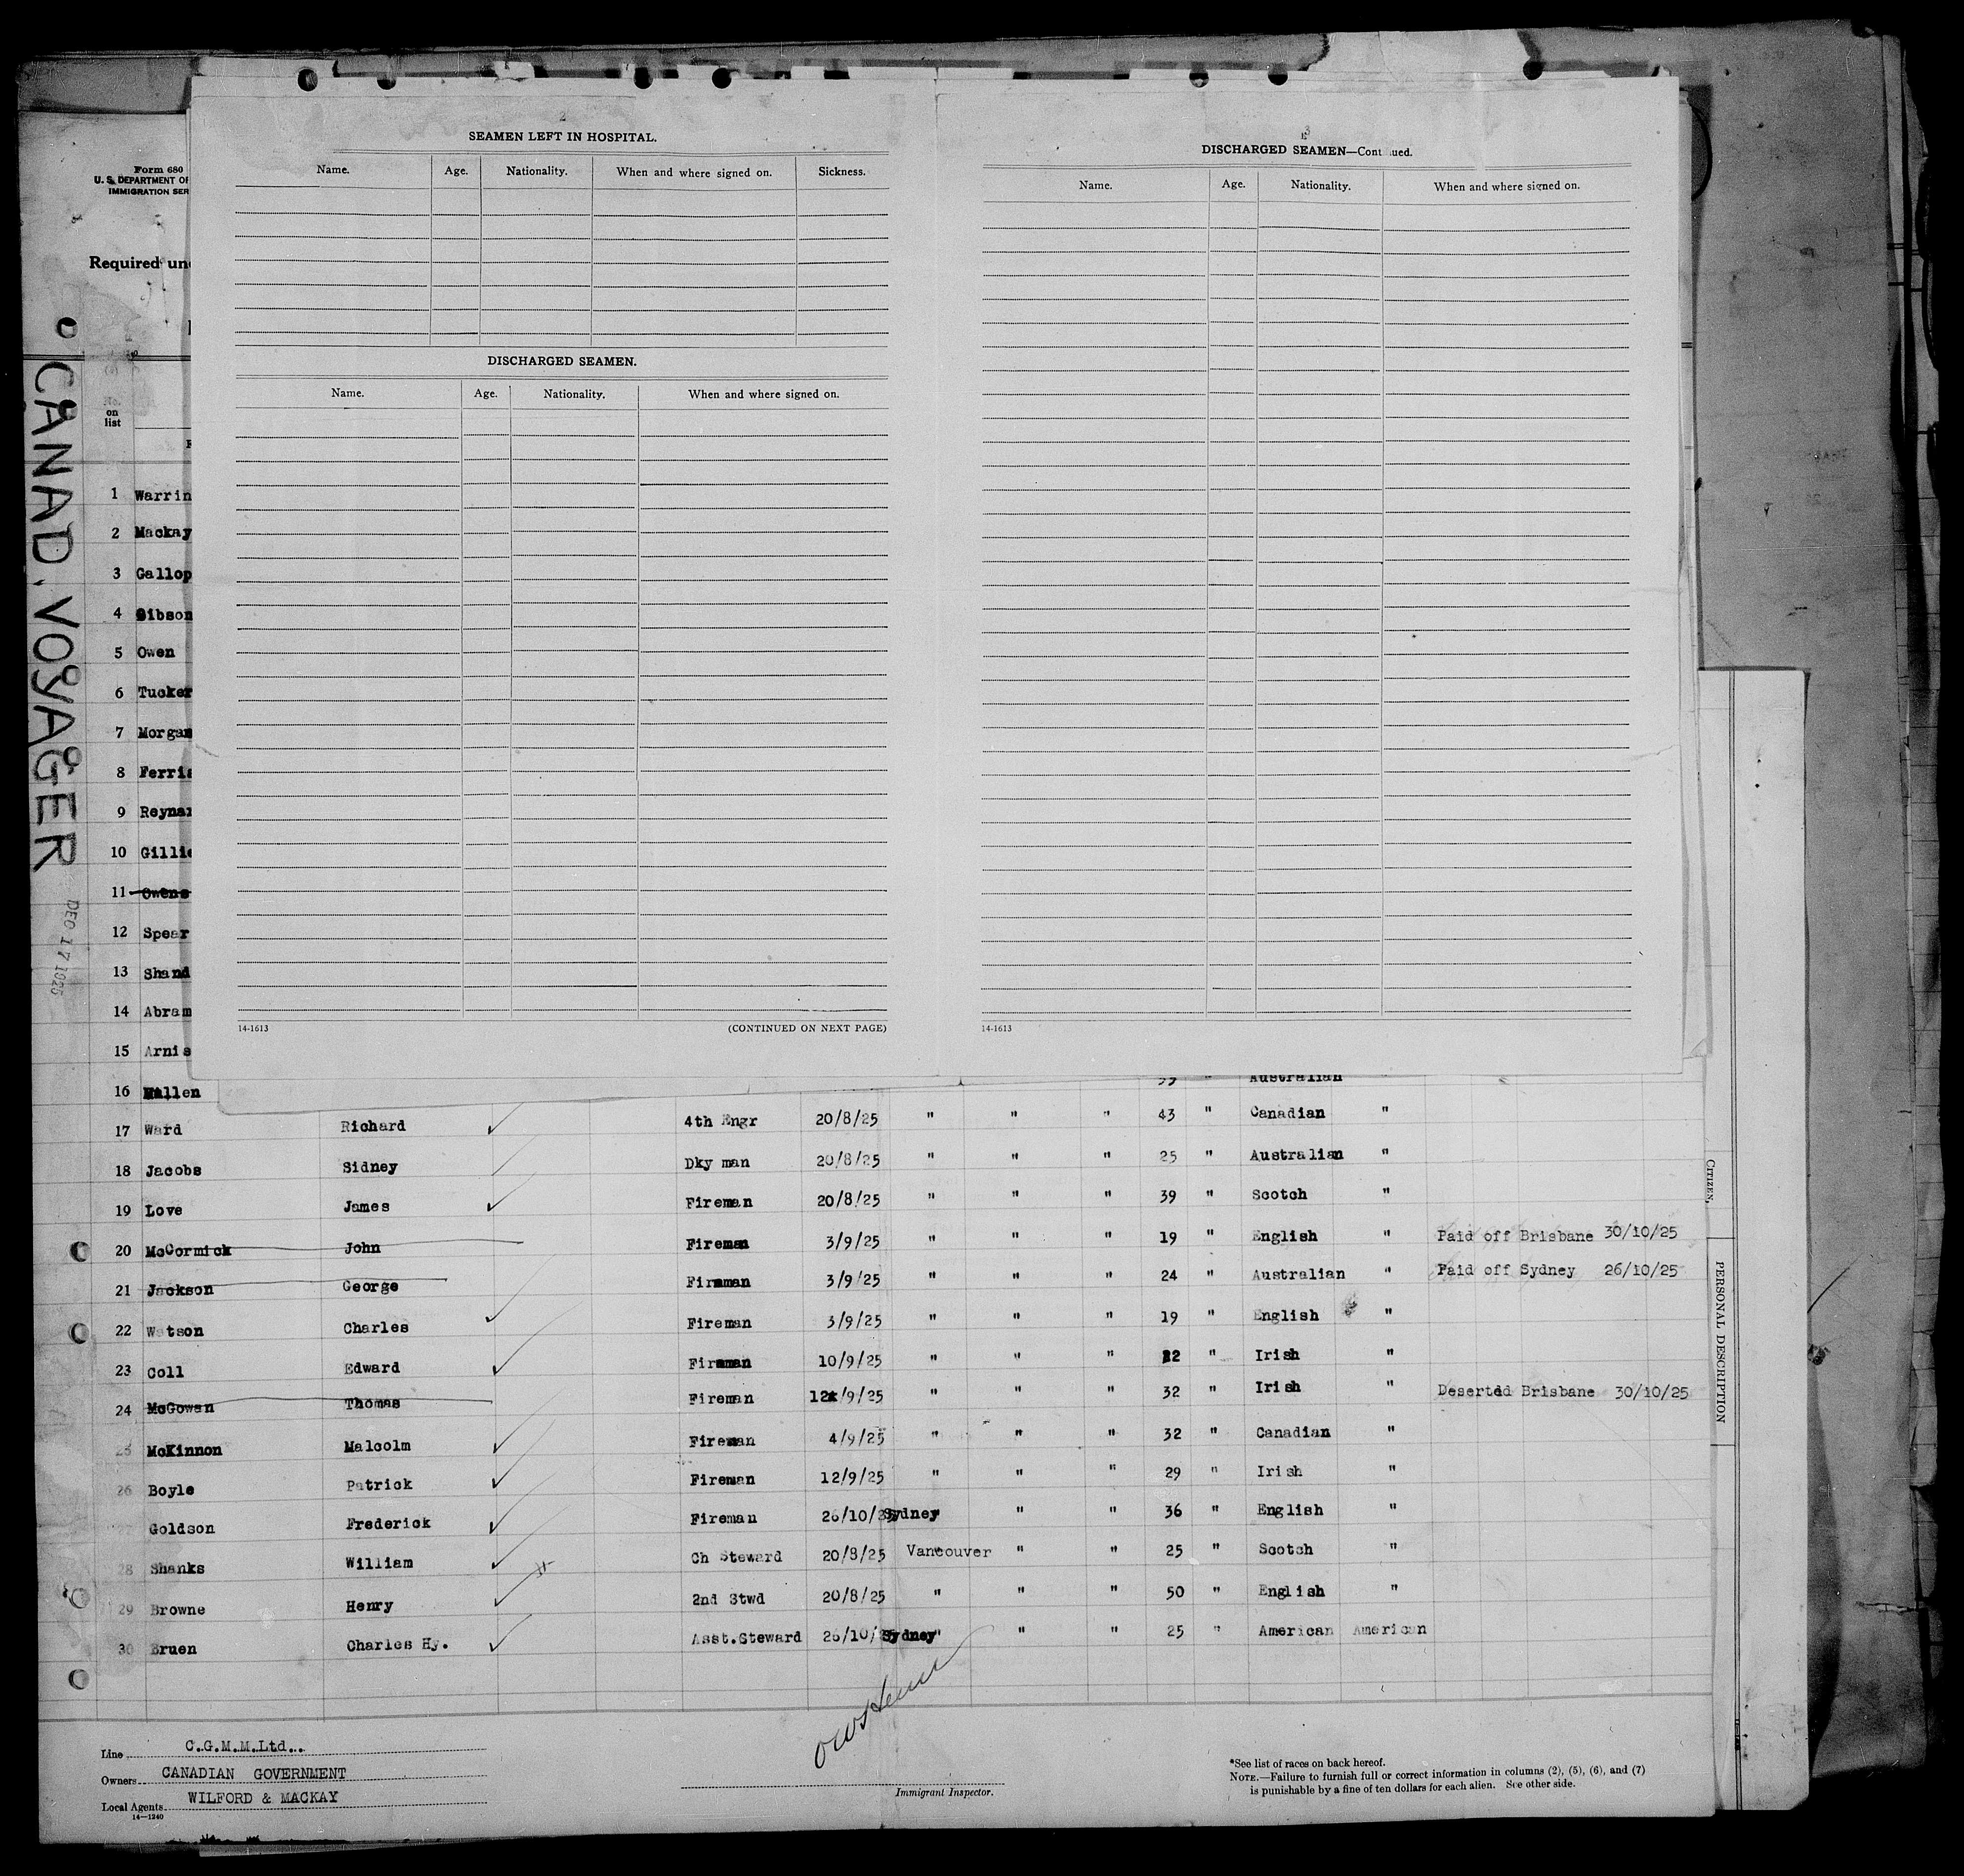 2
SEAMEN LEFT IN HOSPITAL.
Name. Age. Nationality. When and where signed on. Sickness.
DISCHARGED SEAMEN.
Name. Age. Nationality. When and where signed on.
14-1613 (CONTINUED ON NEXT PAGE)
3
DISCHARGED SEAMEN—Cont ued.
Name. Age. Nationality. When and where signed on.
14-1613
Form 680
U. S. DEPARTMENT OF
IMMIGRATION SER
Required und
CANAD. VOYAGER
DEC 17 1925
on
list
1 Warrin
2 Mackay
3 Gallop
4 Gibson
5 Owen
6 Tucker
7 Morgan
8 Ferris
9 Reynar
10 Gillie
11 Owens
12 Spear
13 Shand
14 Abram
15 Arnis
16 Mallen Australian "
17 Ward Richard 4th Engr 20/8/25 " " " 43 " Canadian "
18 Jacobs Sidney Dky man 20/8/25 " " " 25 " Australian "
19 Love James Fireman 20/8/25 " " " 39 " Scotch "
20 McCormick John Fireman 3/9/25 " " " 19 " English " Paid off Brisbane 30/10/25
21 Jackson George Fireman 3/9/25 " " " 24 " Australian " Paid off Sydney 26/10/25
22 Watson Charles Fireman 3/9/25 " " " 19 " English "
23 Coll Edward Fireman 10/9/25 " " " 22 " Irish "
24 McGowan Thomas Fireman 12/9/25 " " " 32 " Irish " Deserted Brisbane 30/10/25
25 McKinnon Malcolm Fireman 4/9/25 " " " 32 " Canadian "
26 Boyle Patrick Fireman 12/9/25 " " " 29 " Irish "
Goldson Frederick Fireman 26/10/25 Sydney " " 36 " English "
28 Shanks William Ch Steward 20/8/25 Vancouver " " 25 " Scotch "
29 Browne Henry 2nd Stwd 20/8/25 " " " 50 " English "
30 Bruen Charles Hy. Asst.Steward 26/10/ Sydney " " 25 " American American
CITIZEN,
PERSONAL DESCRIPTION
Line C.G.M.M.Ltd..
Owners CANADIAN GOVERNMENT
Local Agents WILFORD & MACKAY
14—1240
Immigrant Inspector.
*See list of races on back hereof.
NOTE.—Failure to furnish full or correct information in columns (2), (5), (6), and (7)
is punishable by a fine of ten dollars for each alien. See other side.